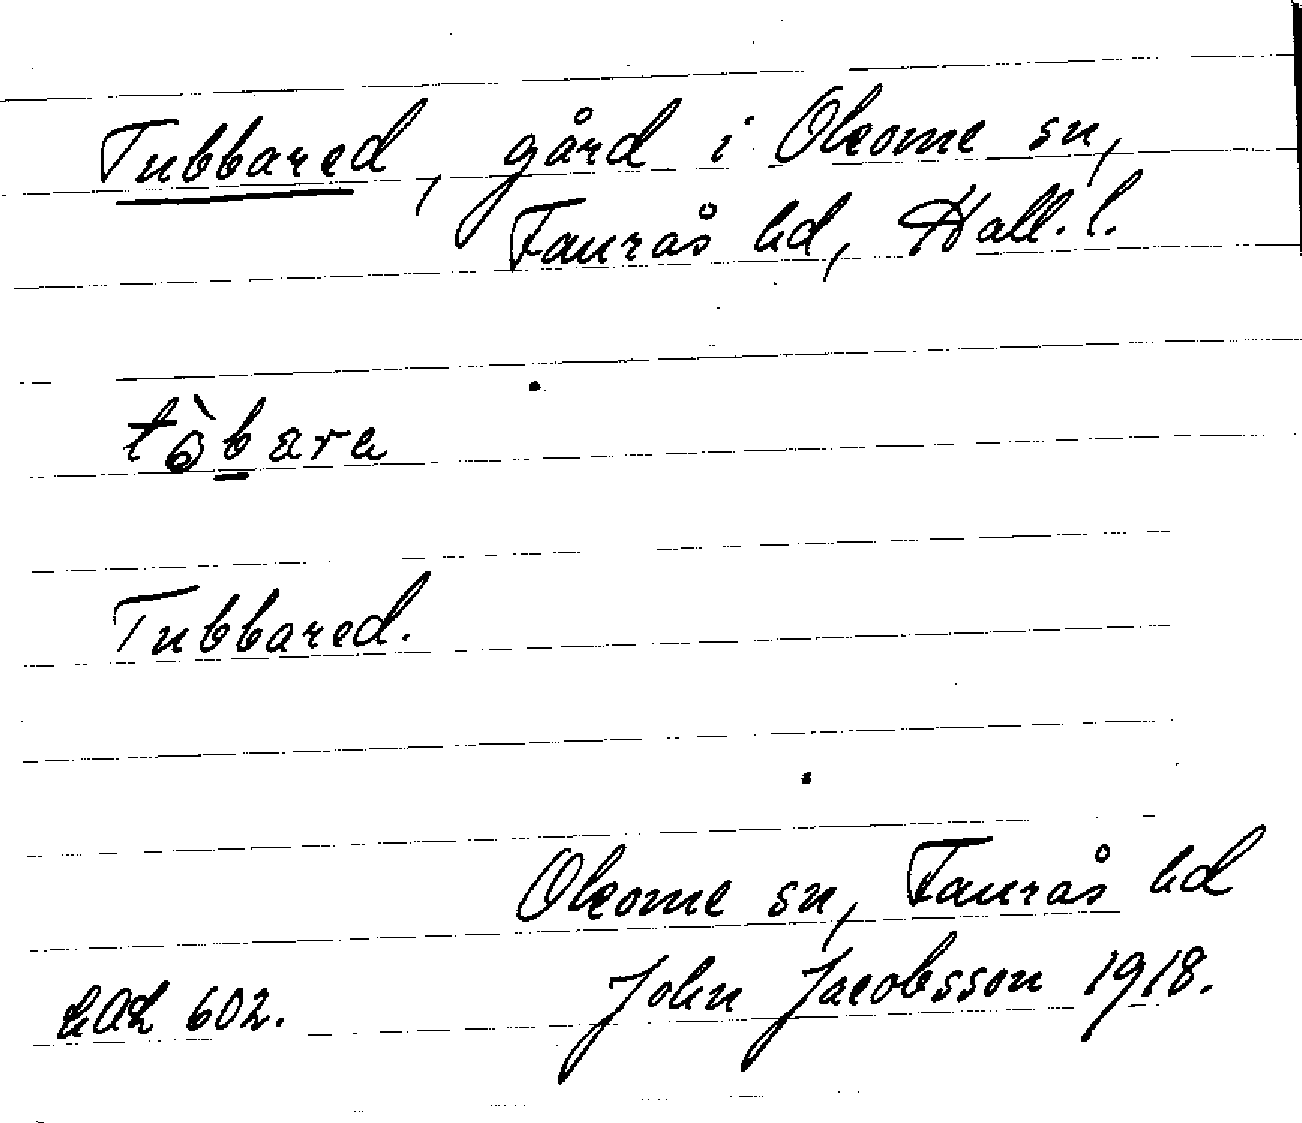 Tubbared, gård i Okome sn,
Faurås hd, Hall. l.
Tubbared.
Okome sn, Faurås hd
602. John Jacobsson 1918.